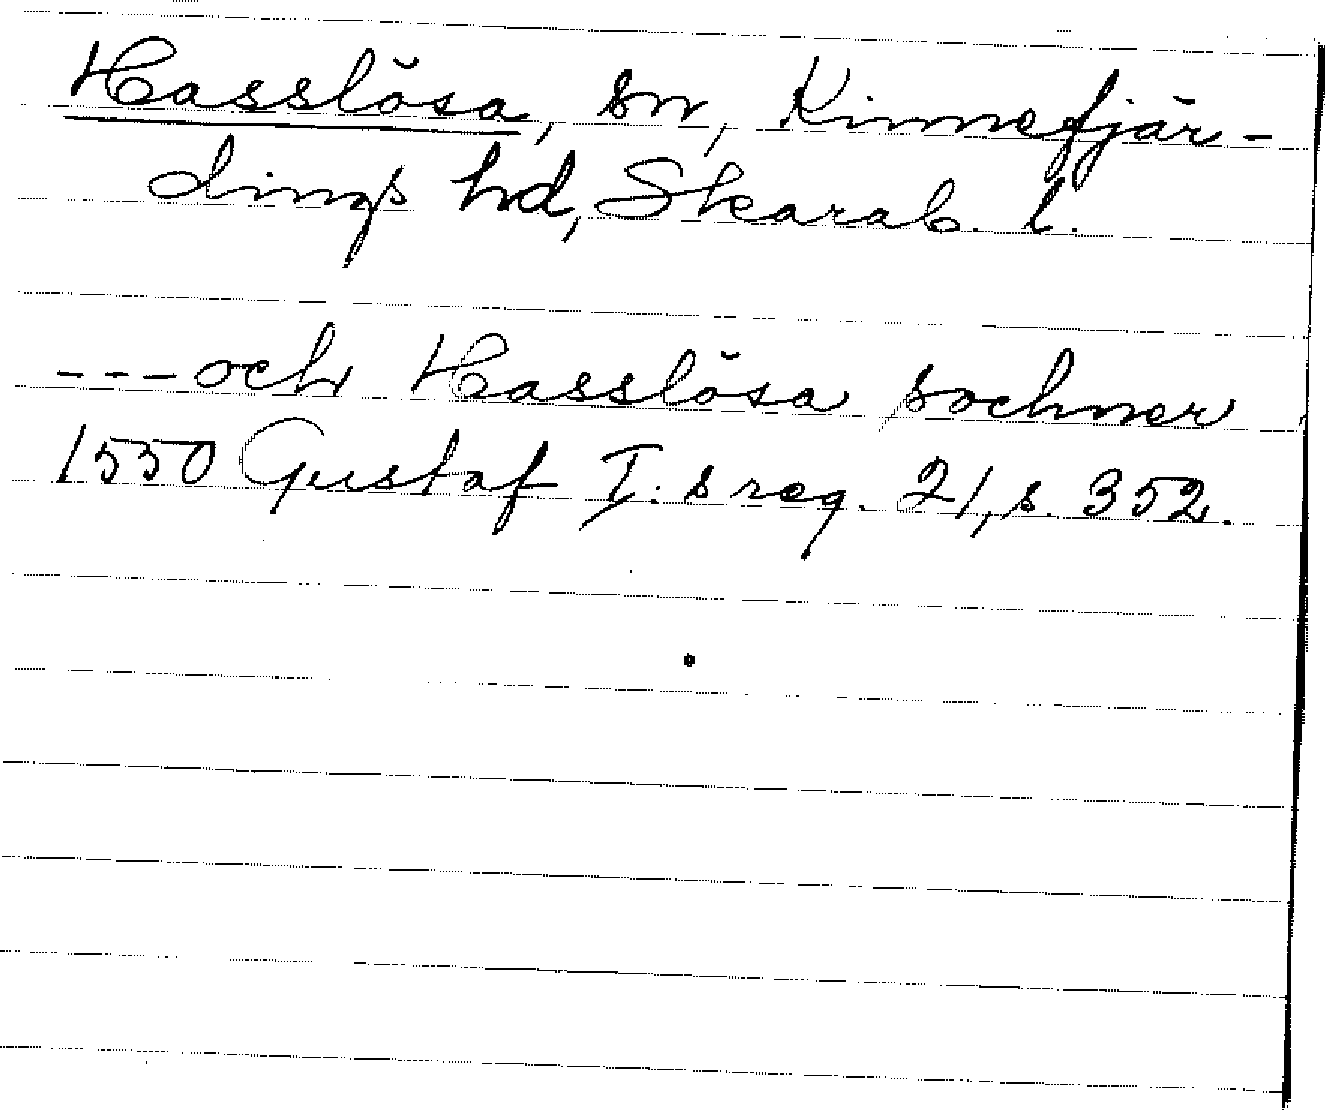 Hasslösa, sn, Kinnefjär-
dings hd, Skarab. l.
---och Hasslösa sochner
1550 Gustaf I:s reg. 21, s. 352.